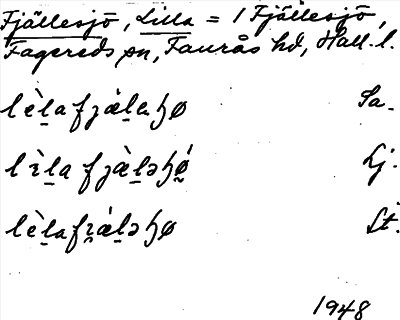 Fjällesjö, Lilla = 1 Fjällesjö,
Fagereds sn, Faurås hd, Hall. l.
lèla fjàlaɧø Sa.
lìla fjàləɧø̀ Lj.
lèlafi̯àləɧø St.
1948